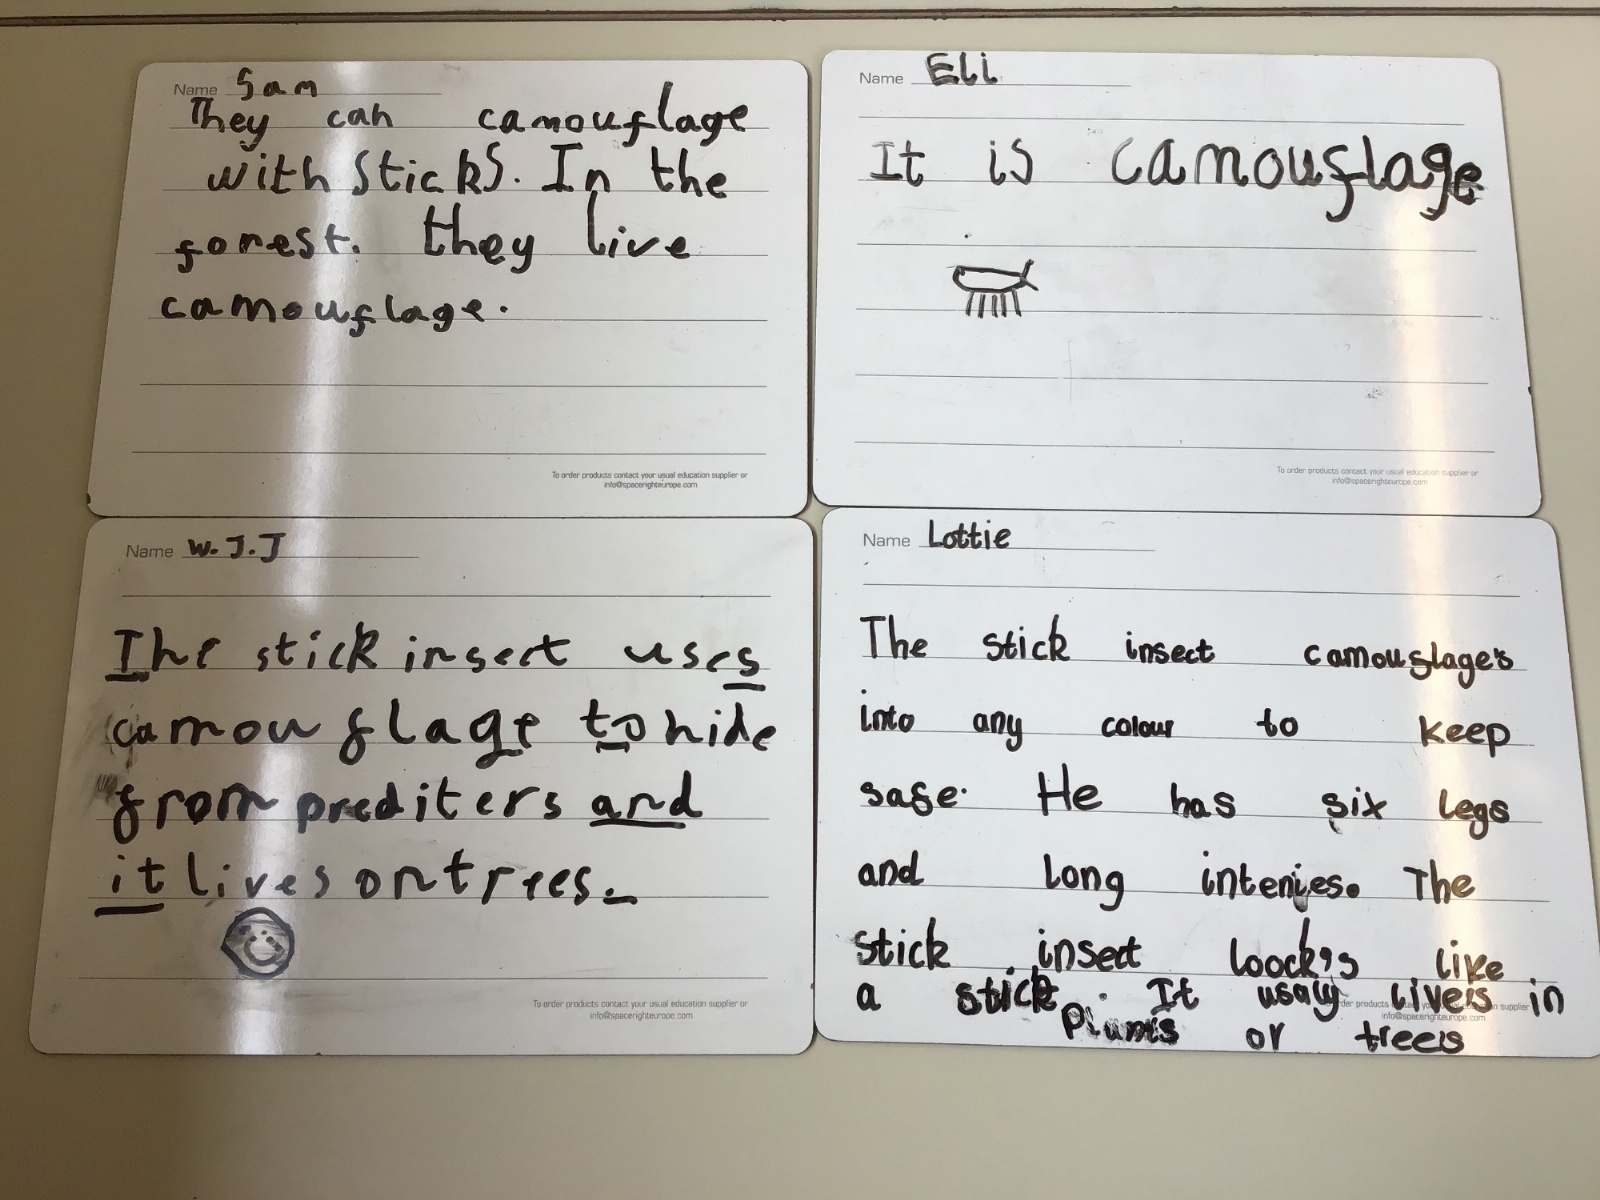 Name Sam
They can camouflage
with sticks. In the
forest. they live
camouflage.
To order products contact your usual education supplier or
info@spacerighteurope.com
Name Eli
It is camouflage
To order products contact your usual education supplier or
info@spacerighteurope.com
Name W.J.J
The stick insect uses
camouflage to hide
from prediters and
it lives on trees.
To order products contact your usual education supplier or
info@spacerighteurope.com
Name Lottie
The stick insect camouflage's
into any colour to keep
safe. He has six legs
and long intenies. The
stick insect loock's like
a stick. It usaly lives in
Plants or trees
info@spacerighteurope.com